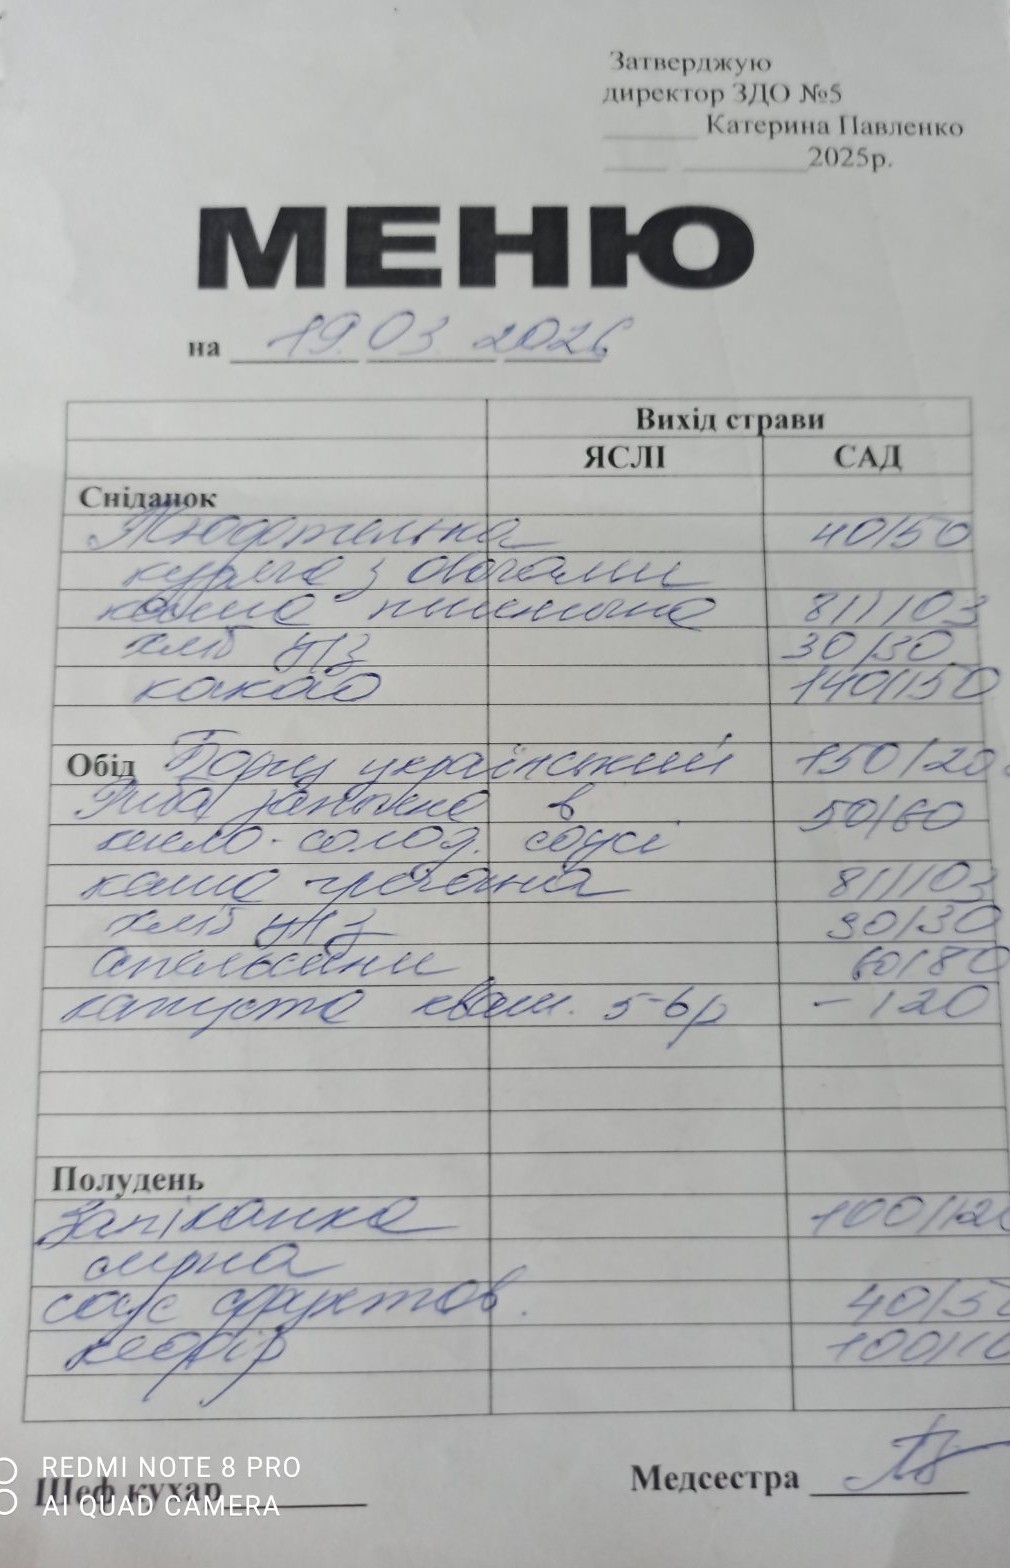 Затверджую
директор ЗДО №5
Катерина Павленко
2025р.
МЕНЮ
на 19.03 2026
Вихід страви
ЯСЛІ САД
Сніданок
40/50
куряча з овочами
каша пшенична 81/103
хліб ц/з 30/30
какао 140/150
Обід Борщ український 150/20
Риба запечена в 50/60
кисло-солод. соусі
каша гречана 81/103
хліб ц/з 30/30
апельсини 60/80
капуста кваш. 5-6р -/20
Полудень
Запіканка 100/120
сирна
соус фруктов. 40/50
кефір 100/10
Шеф кухар Медсестра
REDMI NOTE 8 PRO
AI QUAD CAMERA